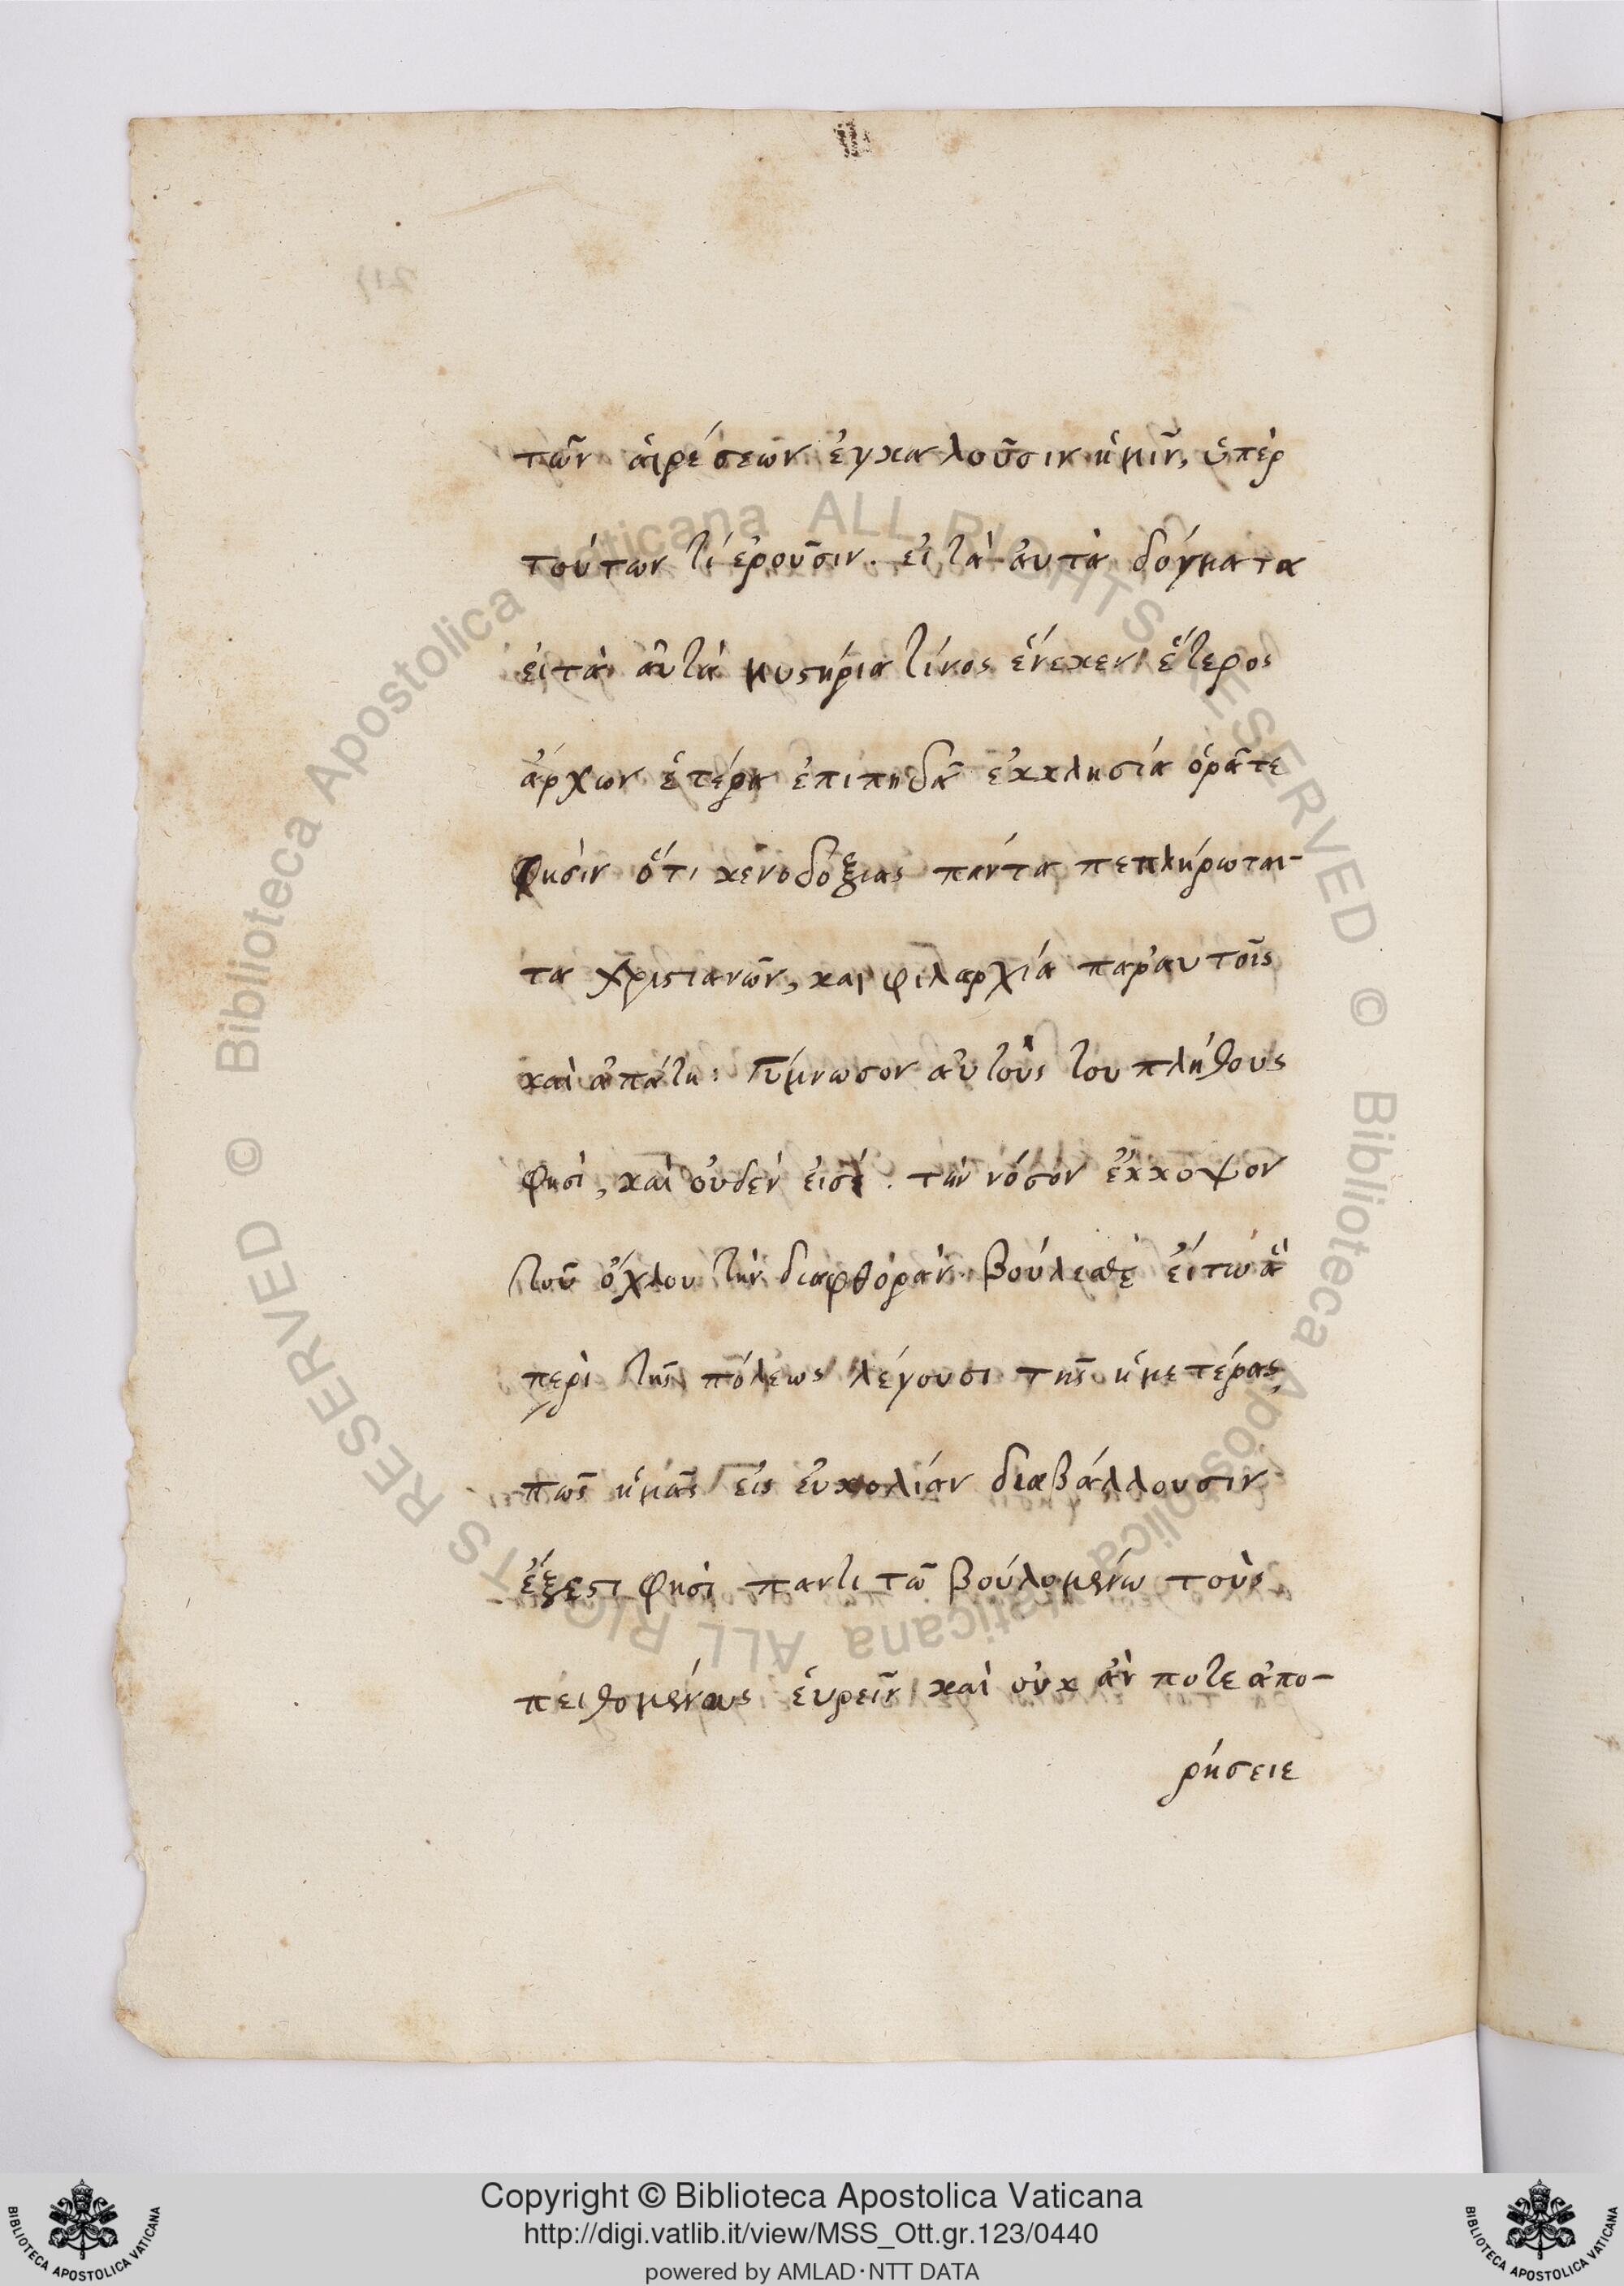 τῶν αἱρέσεων ἐγκαλοῦσιν ἡμῖν, ὑπὲρ
τούτων τί ἐροῦσιν. εἰ τὰ αὐτὰ δόγματα
εἰ τὰ αὐτὰ μυστήρια τίνος ἕνεκεν ἕτερος
ἄρχων ἑτέρα ἐπιπηδᾶ ἐκκλησία ὁρᾶτε
φησὶν ὅτι κενοδοξίας πάντα πεπλήρωται
τα χριστιανῶν, και φιλαρχία παρ' αυτοῖς
καὶ ἀπάτη. Γύμνωσον αὐτοὺς του πλήθους
φησὶ, καὶ οὐδέν εἰσί. τὴν νόσον ἔκκοψον
τοῦ ὄχλου τὴν διαφθοράν. βούλεσθε εἴπω ἃ
περὶ τῆς πόλεως λέγουσι τῆς ἡμετέρας
πῶς ἡμᾶς εἰς εὐκολίαν διαβάλλουσιν
ἔξεστι φησὶ παντὶ τῶ βουλομένω τοὺς
πειθομένους εὑρεῖν καὶ οὐκ ἄν ποτε ἀπο-
ρήσειε
Copyright © Biblioteca Apostolica Vaticana
http://digi.vatlib.it/view/MSS_Ott.gr.123/0440
powered by AMLAD·NTT DATA
© Biblioteca Apostolica Vaticana ALL RIGHTS RESERVED
© Biblioteca Apostolica Vaticana ALL RIGHTS RESERVED
BIBLIOTECA APOSTOLICA VATICANA
BIBLIOTECA APOSTOLICA VATICANA